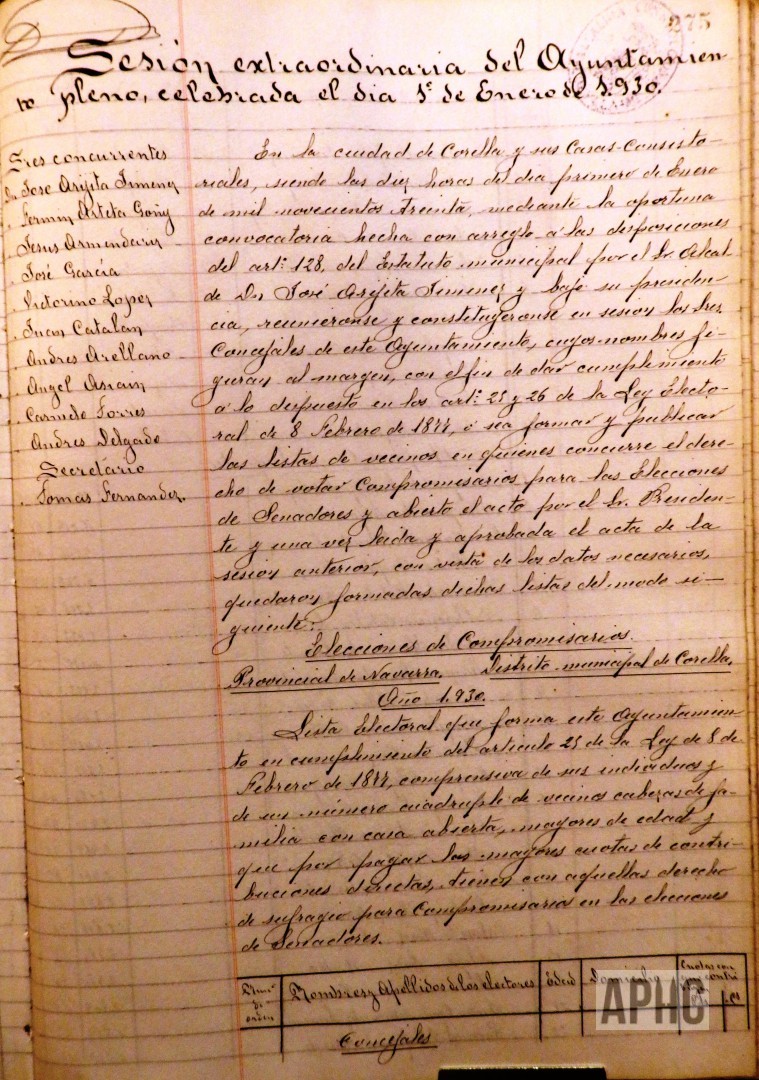 275
Sesión extraordinaria del Ayuntamien
to pleno, celebrada el dia 1º de Enero de 1.930.
Sres concurrentes
Dn Jose Arijita Jimenez
Fermin Arteta Goñy
Jesus Armendariz
José García
Victorino Lopez
Juan Catalán
Andres Arellano
Angel Asiain
Carmelo Torres
Andres Delgado
Secretario
Tomas Fernandez.
En la ciudad de Corella y sus Casas-Consisto-
riales, siendo las diez horas del dia primero de Enero
de mil novecientos treinta, mediante la oportuna
convocatoria hecha con arreglo á las disposiciones
del artº 128, del Estatuto municipal por el Sr. Alcal
de Dn José Arijita Jimenez y bajo su presiden-
cia, reunieronse y constituyeronse en sesion los Sres.
Concejáles de este Ayuntamiento, cuyos nombres fi-
guran al margen, con el fin de dar cumplimiento
á lo dispuesto en los artº 25 y 26 de la Ley Electo-
ral de 8 Febrero de 1877, ó sea formar y publicar
las listas de vecinos en quienes concurre el dere-
cho de votar Compromisarios para las Elecciones
de Senadores y abierto el acto por el Sr. Presiden-
te y una vez leida y aprobada el acta de la
sesion anterior, con vista de los datos necesarios,
quedaron formadas dichas listas del modo si-
guiente:
Elecciones de Compromisarios.
Provincial de Navarra. Distrito municipal de Corella.
Año 1.930.
Lista Electoral que forma este Ayuntamien-
to en cumplimiento del articulo 25 de la Ley de 8 de
Febrero de 1877, comprensiva de sus individuos y
de un número cuadruple de vecinos cabezas de fa-
milia con casa abierta, mayores de edad y
que por pagar las mayores cuotas de contri-
buciones directas, tienen con aquellas derecho
de sufragio para Compromisarios en las elecciones
de Senadores.
Núm.º de orden
Nombres y Apellidos de los electores
Edad
Domicilio
Concejales
APHC